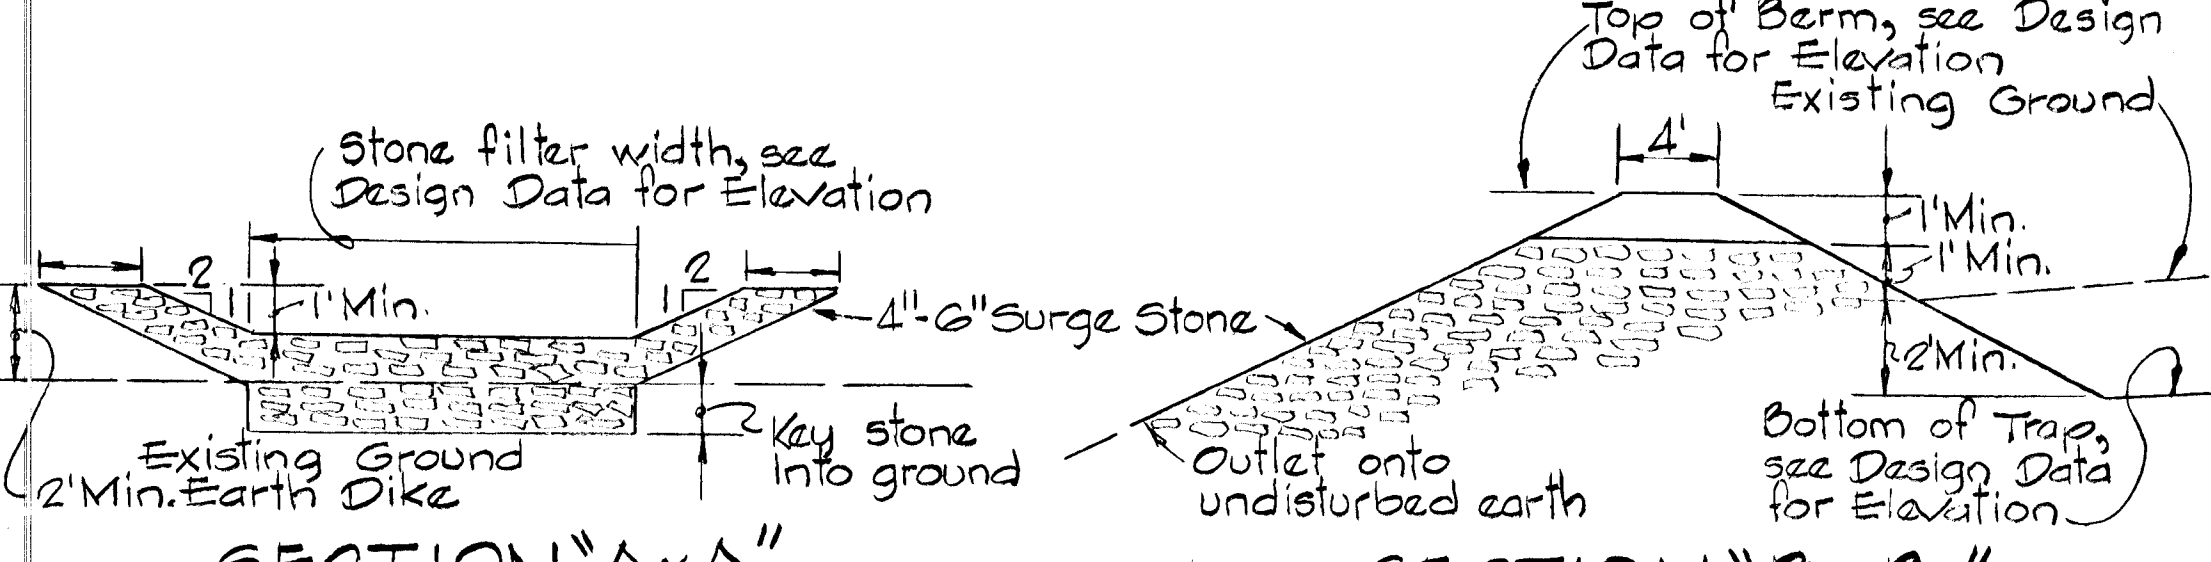 Stone filter width, see
Design Data for Elevation
2
1
1'Min.
2
1
4"-6" Surge Stone
Key stone
Into ground
Existing Ground
2'Min. Earth Dike
SECTION "A-A"
Top of Berm, see Design
Data for Elevation
Existing Ground
4'
1'Min.
1'Min.
2'Min.
Outlet onto
undisturbed earth
Bottom of Trap,
see Design Data
for Elevation
SECTION